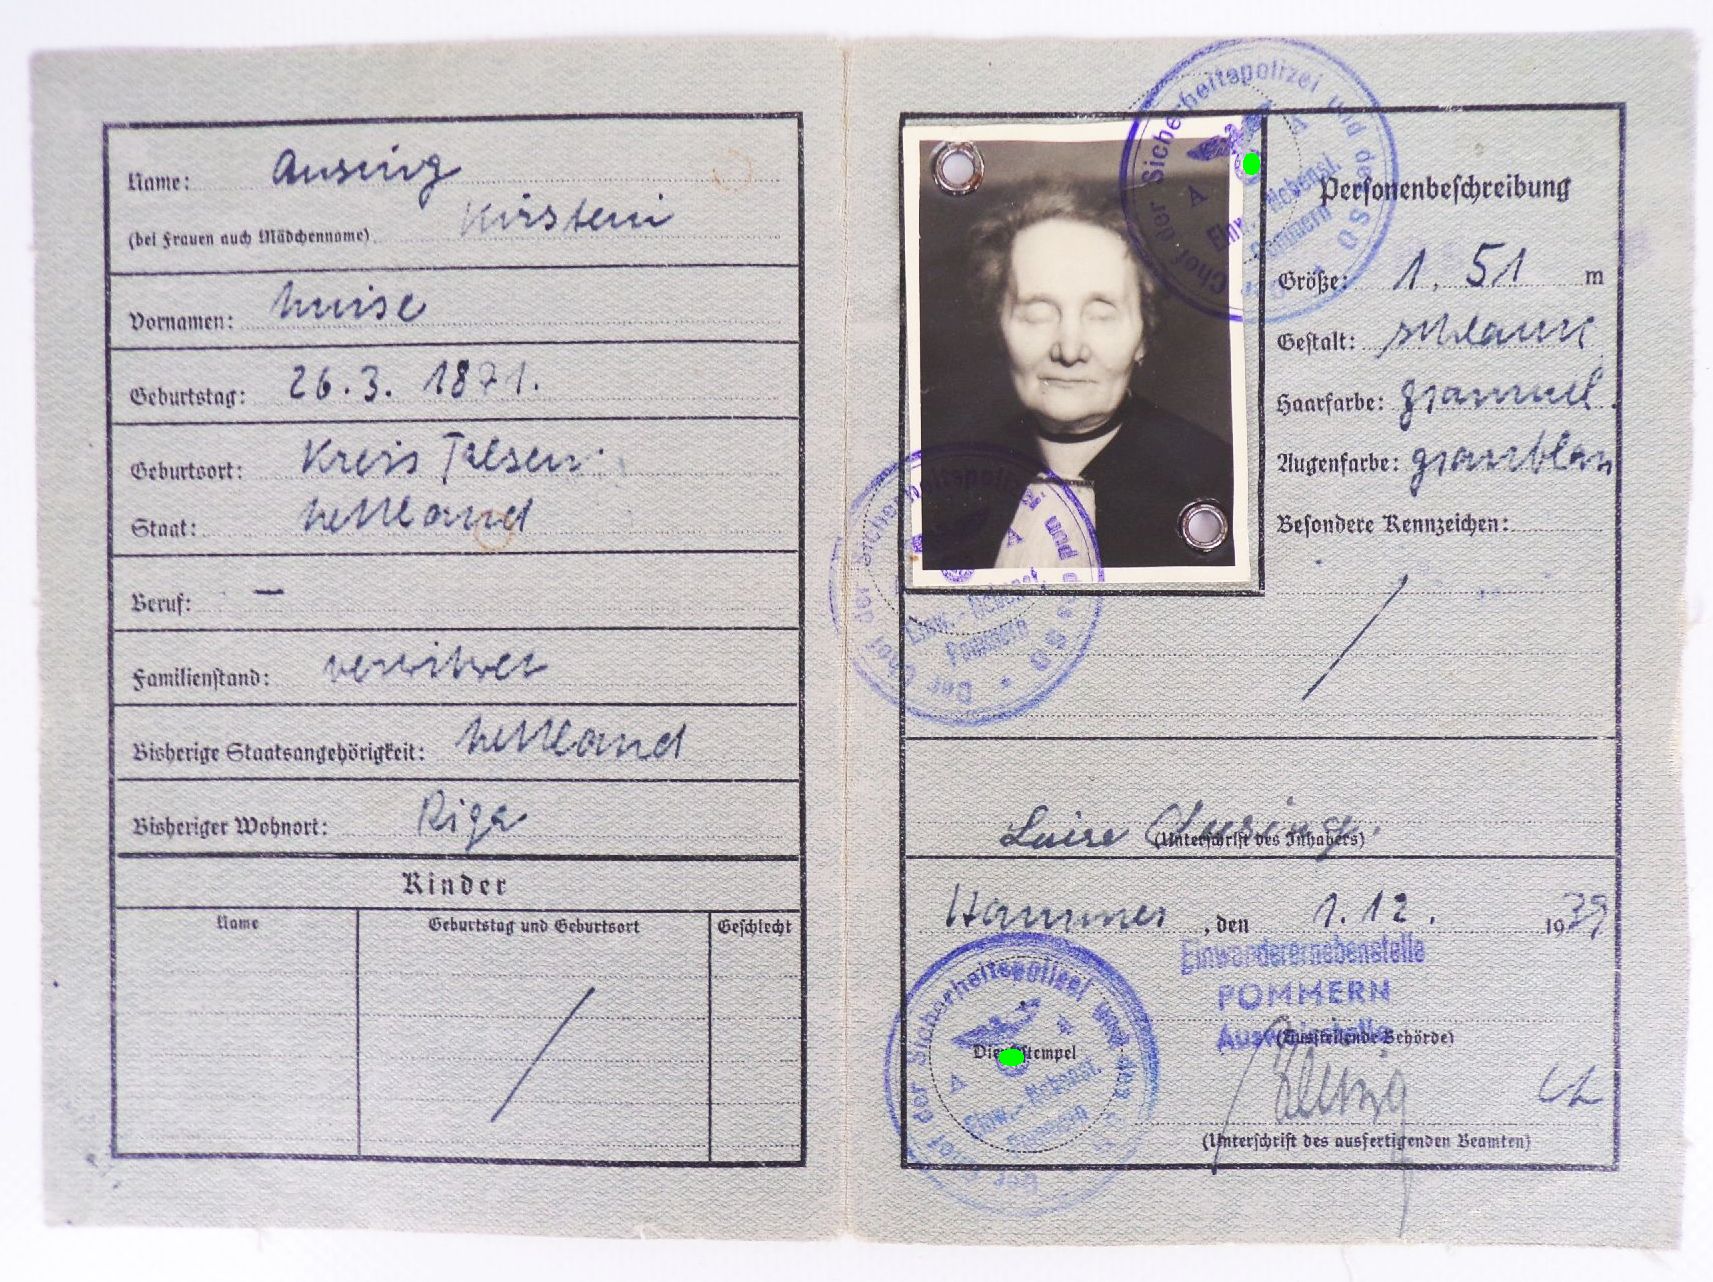 Name: Ausing
(bei Frauen auch Mädchenname) Kirstein
Vornamen: Luise
Geburtstag: 26.3.1871.
Geburtsort: Kreis Talsen
Staat: Lettland
Beruf: —
Familienstand: verwitwet
Bisherige Staatsangehörigkeit: Lettland
Bisheriger Wohnort: Riga
Kinder
Name Geburtstag und Geburtsort Geschlecht
Der Chef der Sicherheitspolizei und des SD
Einw.-Nebenst.
Pommern
Personenbeschreibung
Größe: 1.51 m
Gestalt: schlank
Haarfarbe: graumel.
Augenfarbe: graublau
Besondere Kennzeichen:
Der Chef der Sicherheitspolizei und des SD
Einw.-Nebenst.
Pommern
Luise Ausing.
(Unterschrift des Inhabers)
Hammer, den 1.12. 1939
Einwanderernebenstelle
POMMERN
Ausweisstelle
(Ausstellende Behörde)
Dienststempel
Der Chef der Sicherheitspolizei und des SD
Einw.-Nebenst.
Pommern
(Unterschrift des ausfertigenden Beamten)